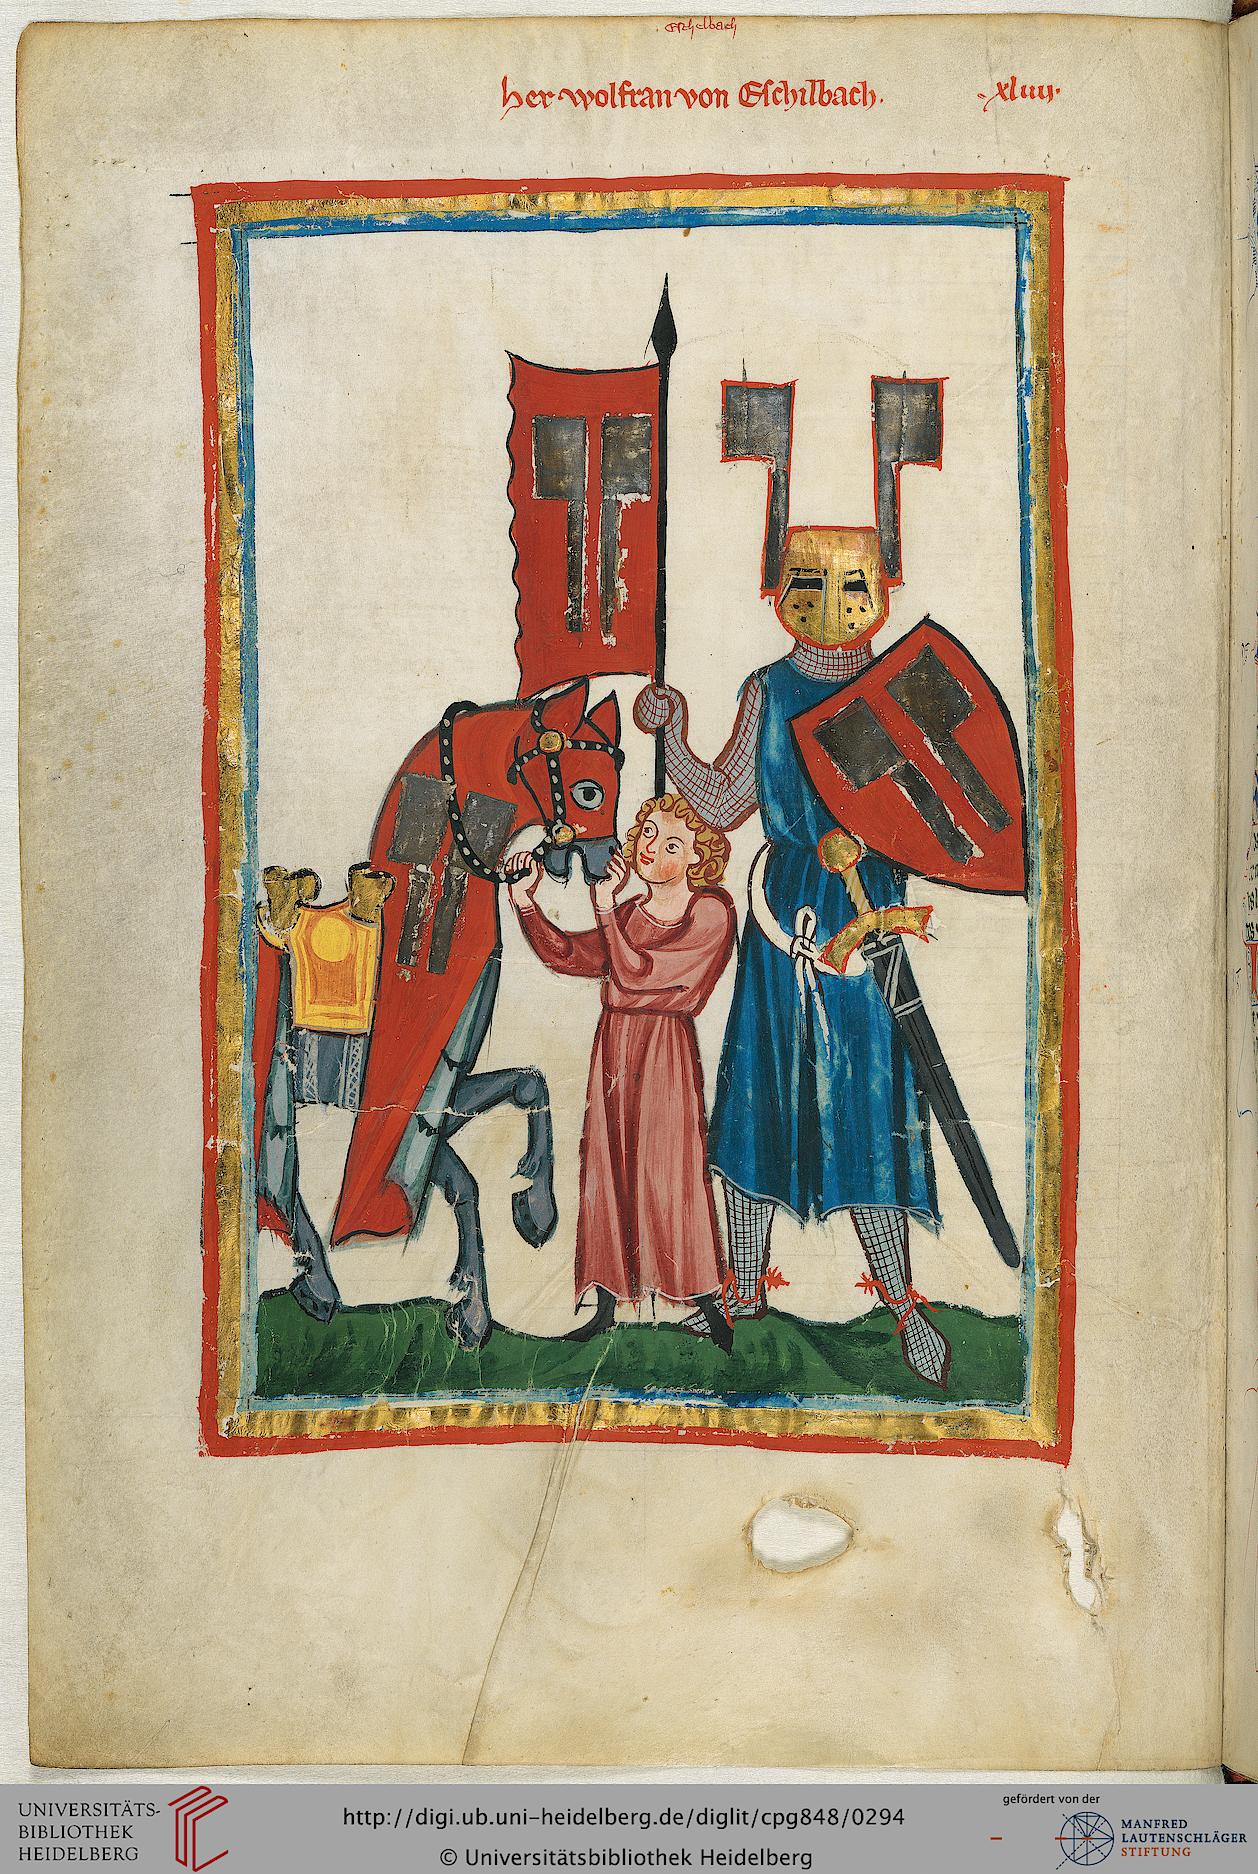 Eschelbach
her wolfran von Eschilbach. .xliiij.
UNIVERSITÄTS-
BIBLIOTHEK
HEIDELBERG
http://digi.ub.uni-heidelberg.de/diglit/cpg848/0294
© Universitätsbibliothek Heidelberg
gefördert von der
MANFRED
LAUTENSCHLÄGER
STIFTUNG